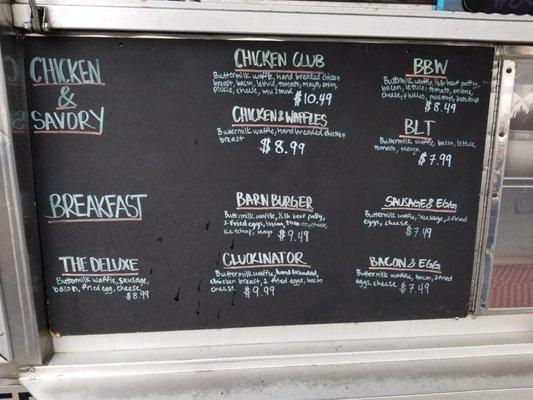 CHICKEN
&
SAVORY
CHICKEN CLUB
Buttermilk waffle, hand breaded chicken
breast, bacon, letuce, tomato, mayo, onion,
pickle, cheese, mustard
$10.49
CHICKEN & WAFFLES
Buttermilk waffle, hand breaded chicken
breast
$8.99
BBW
Buttermilk waffle, 1/2 lb beef patty,
bacon, letuce, tomato, onions,
cheese, pickles, mustard, ketchup
$8.49
BLT
Buttermilk waffle, bacon, letuce,
tomato, mayo
$7.99
BREAKFAST
THE DELUXE
Buttermilk waffle, sausage,
bacon, fried egg, cheese
$8.99
BARN BURGER
Buttermilk waffle, 1/2 lb beef patty,
2 fried eggs, bacon, tomato, cheese,
ketchup, mayo $9.49
CLUCKINATOR
Buttermilk waffle, hand breaded
chicken breast, 2 fried eggs, bacon
cheese $9.99
SAUSAGE & EGG
Buttermilk waffle, sausage, 2 fried
eggs, cheese
$7.49
BACON & EGG
Buttermilk waffle, bacon, 2 fried
eggs, cheese $7.49